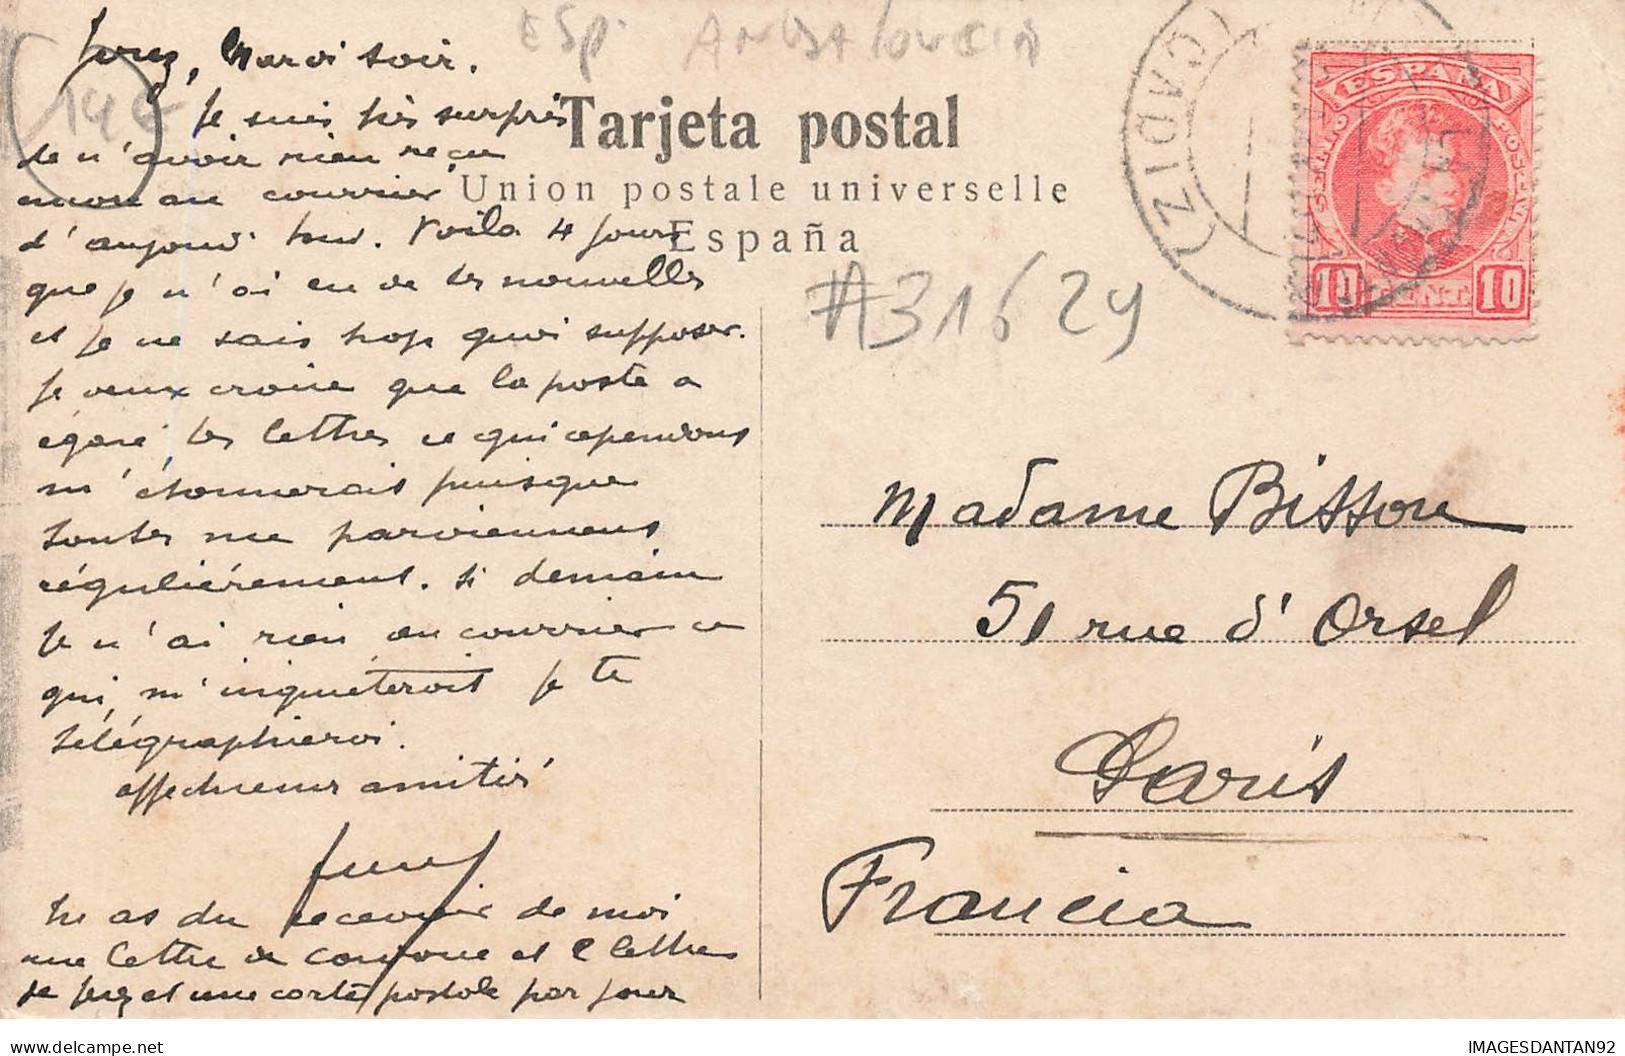 Esp. Andalousia
14€
Jerez, Mardi soir.
Je suis très surpris
de n'avoir rien reçu
encore au courrier
d'aujourd'hui. Voila 4 jours
que je n'ai eu de tes nouvelles
et je ne sais trop quoi supposer.
Je veux croire que la poste a
égaré tes lettres ce qui cependant
m'étonnerait puisque
toutes me parviennent
régulièrement. Si demain
je n'ai rien au courrier ce
qui m'inquiéterait je te
télégraphierai.
affectueuse amitié
Tu as du recevoir de moi
une lettre de et 2 lettres
de Jerez et une carte postale par jour
Tarjeta postal
Union postale universelle
España
#31629
(CADIZ)
ESPAÑA
10 CENT. 10
Madame Bisson
51 rue d'Orsel
Paris
Francia
IMAGESDANTAN92
delcampe.net